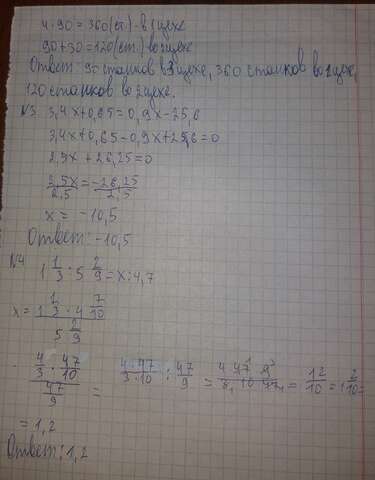 4·90=360(ст.)-в 1 цехе
90+30=120(ст.) во 2 цехе
Ответ: 90 станков в 3 цехе, 360 станков во 1 цехе,
120 станков во 2 цехе.
№3 3,4x+0,65=0,9x-25,6
3,4x+0,65-0,9x+25,6=0
2,5x+26,25=0
2,5x/2,5 = -26,25/2,5
x= -10,5
Ответ: -10,5
№4
1 1/3 : 5 2/9 = x : 4,7
x = (1 1/3 · 4 7/10) / (5 2/9)
(4/3 · 47/10) / (47/9) = (4·47)/(3·10) : 47/9 = (4 47 9)/(3 10 47) = 12/10 = 1 2/10 =
= 1,2
Ответ: 1,2